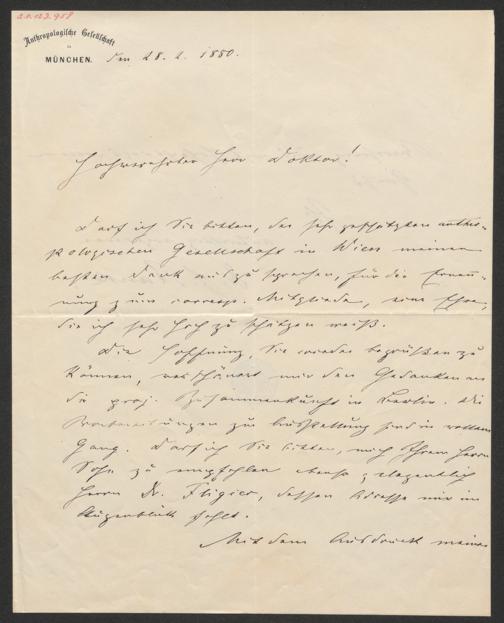 Anthropologische Gesellschaft
in
MÜNCHEN.
Den 28. 2. 1880.
Hochverehrter Herr Doktor!
Darf ich Sie bitten, der sehr geschätzten anthro-
pologischen Gesellschaft in Wien meinen
besten Dank auszusprechen, für die Ernen-
nung zum corresp. Mitgliede, eine Ehre,
die ich sehr hoch zu schätzen weiß.
Die Hoffnung, Sie wieder begrüßen zu
können, verschönert mir den Gedanken an
die proj. Zusammenkunft in Berlin. Die
Vorbereitungen zur Ausstellung sind in vollem
Gang. Darf ich Sie bitten, mich Ihrem Herrn
Sohn zu empfehlen ebenso gelegentlich
Herrn Dr. Fligier, dessen Adresse mir im
Augenblick fehlt.
Mit dem Ausdruck meiner